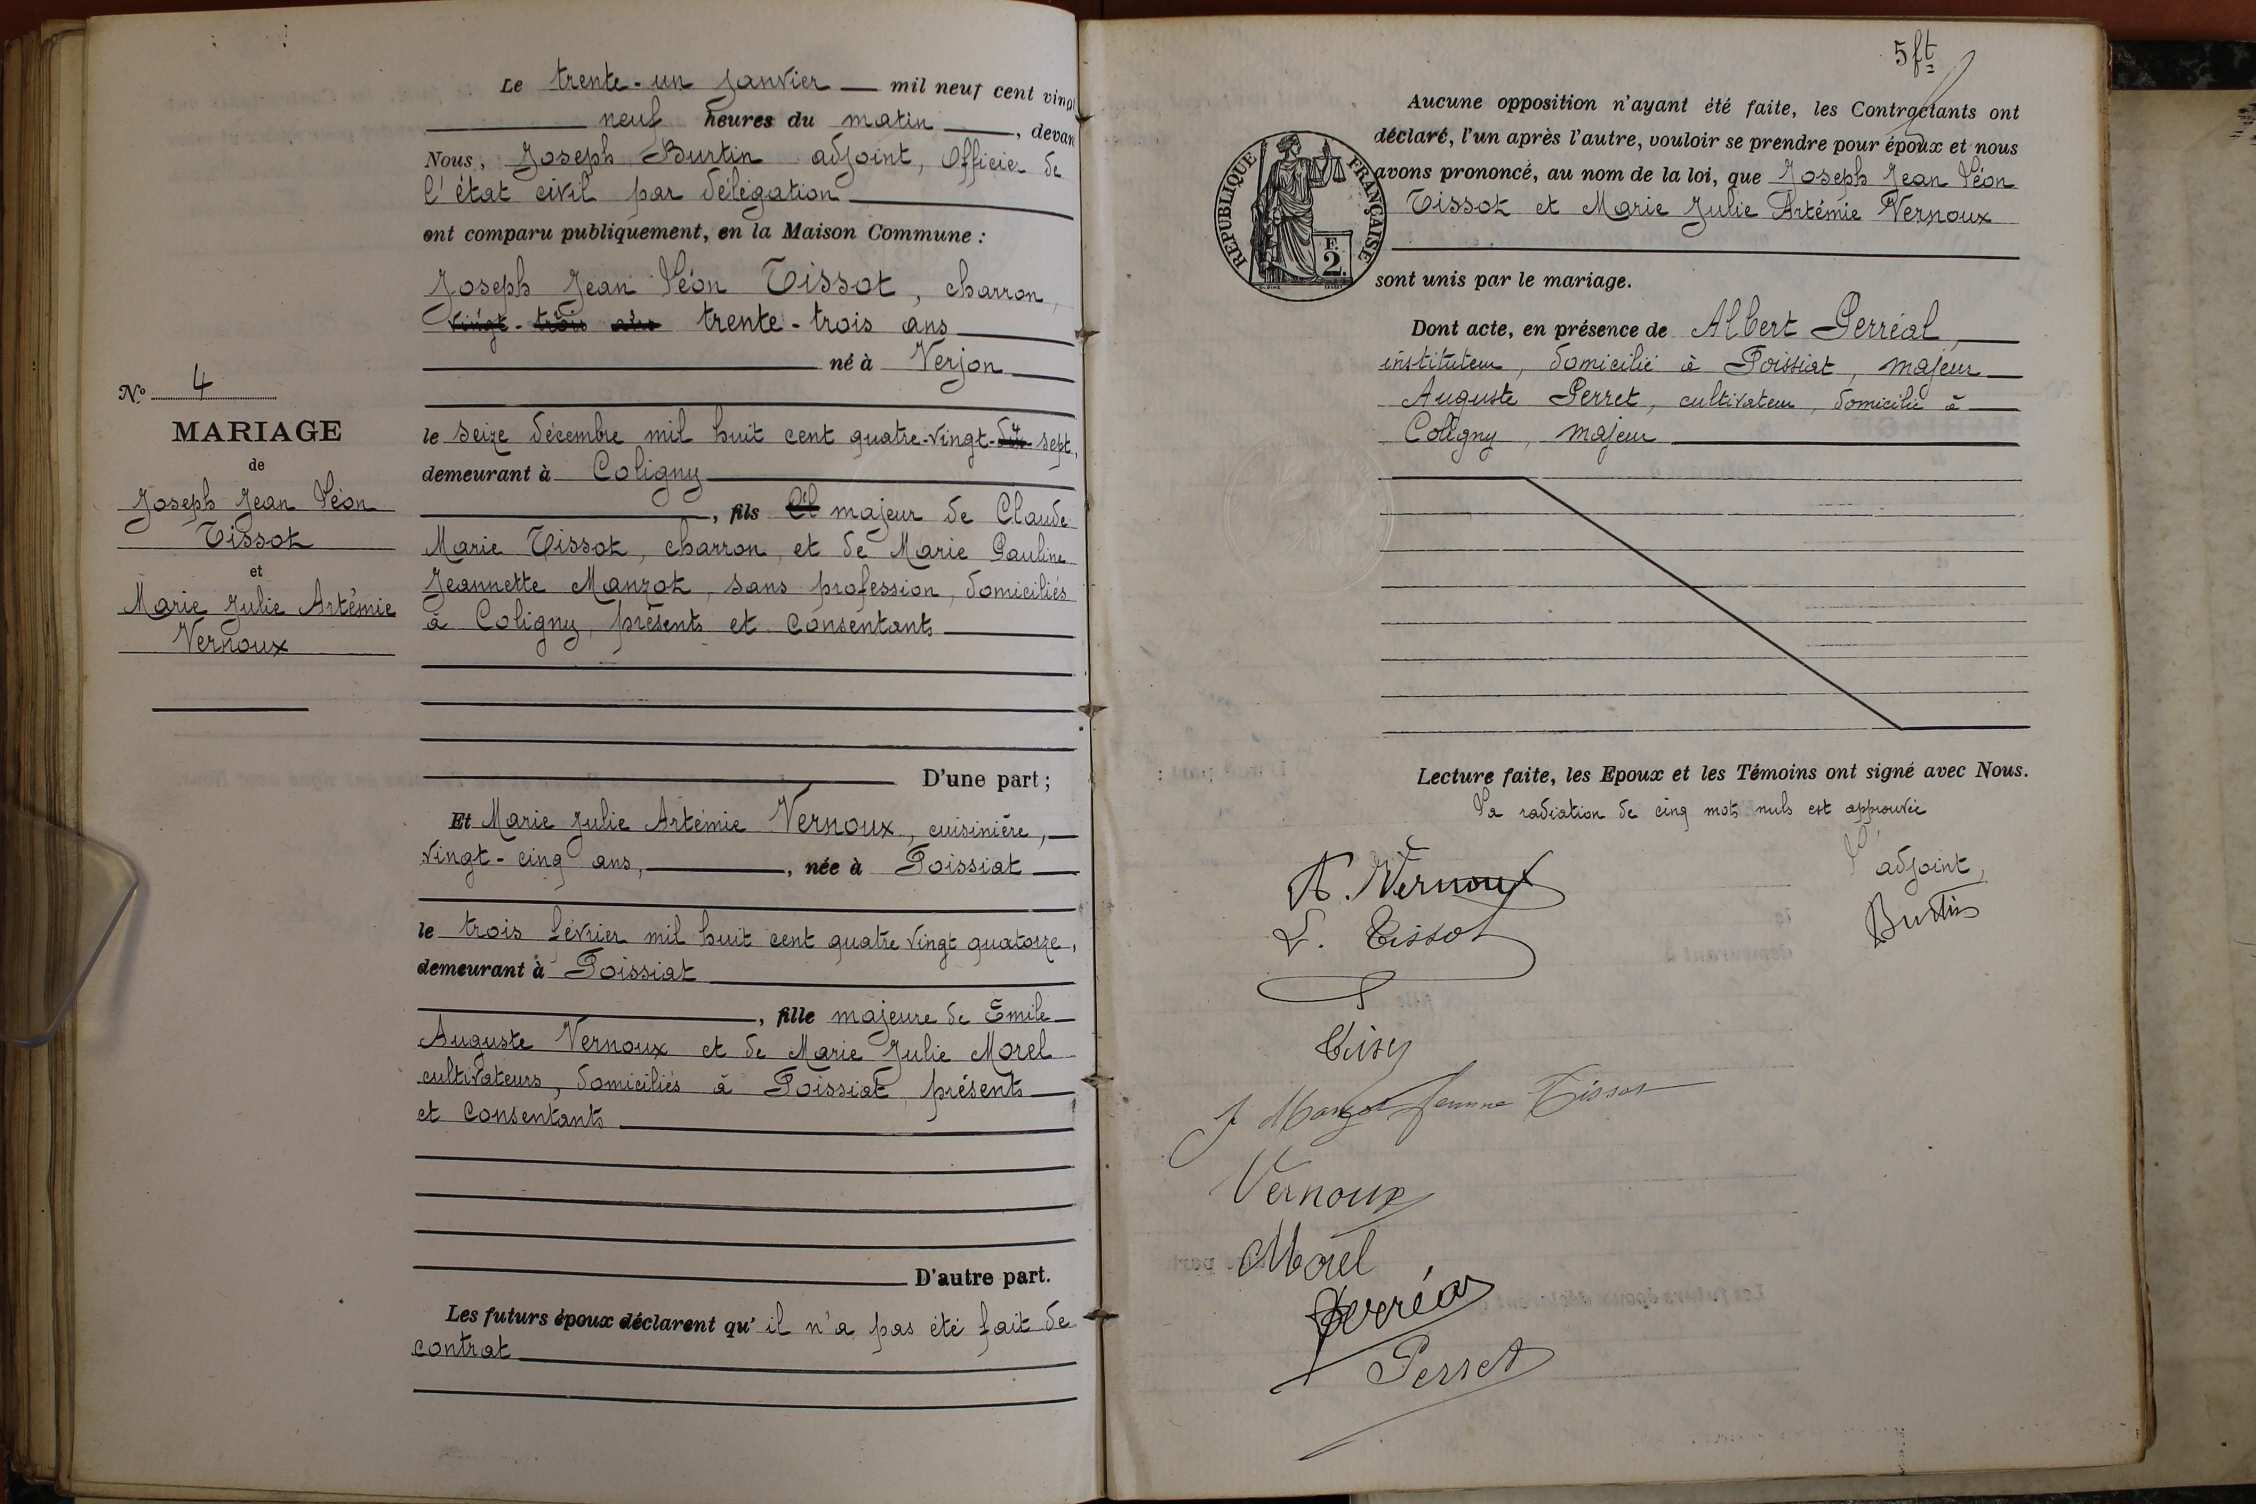 Le trente-un janvier mil neuf cent vingt
neuf heures du matin, devan
Nous, Joseph Burtin adjoint, Officier de
l'état civil par délégation
ont comparu publiquement, en la Maison Commune :
Joseph Jean Léon Tissot, charron,
vingt-trois ans trente-trois ans
né à Verjon
le seize décembre mil huit cent quatre-vingt-dix sept,
demeurant à Coligny
, fils majeur de Claude
Marie Tissot, charron, et de Marie Pauline
Jeannette Manzot, sans profession, domiciliés
à Coligny, présents et consentants
D'une part ;
No 4
MARIAGE
de
Joseph Jean Léon
Tissot
et
Marie Julie Artémie
Vernoux
Et Marie Julie Artémie Vernoux, cuisinière,
vingt-cinq ans, née à Poissiat
le trois février mil huit cent quatre vingt quatorze,
demeurant à Poissiat
, fille majeure de Emile
Auguste Vernoux et de Marie Julie Morel
cultivateurs, domiciliés à Poissiat présents
et consentants
D'autre part.
Les futurs époux déclarent qu'il n'a pas été fait de
contrat
5 ft
Aucune opposition n'ayant été faite, les Contractants ont
déclaré, l'un après l'autre, vouloir se prendre pour époux et nous
avons prononcé, au nom de la loi, que Joseph Jean Léon
Tissot et Marie Julie Artémie Vernoux
REPUBLIQUE FRANÇAISE
F.
2.
sont unis par le mariage.
Dont acte, en présence de Albert Perréal,
instituteur, domicilié à Poissiat, majeur
Auguste Perret, cultivateur, domicilié à
Coligny, majeur
Lecture faite, les Epoux et les Témoins ont signé avec Nous.
La radiation de cinq mots nuls est approuvée
L'adjoint,
Burtin
A. Vernoux
L. Tissot
J Manzot femme Tissot
Vernoux
Morel
Perréal
Perret